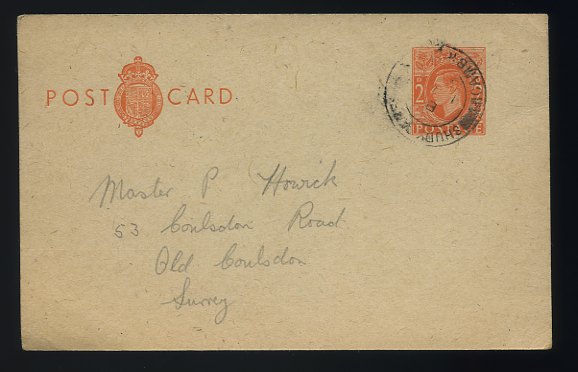 POST CARD
2D
POSTAGE
Master P Howick
53 Coulsdon Road
Old Coulsdon
Surrey